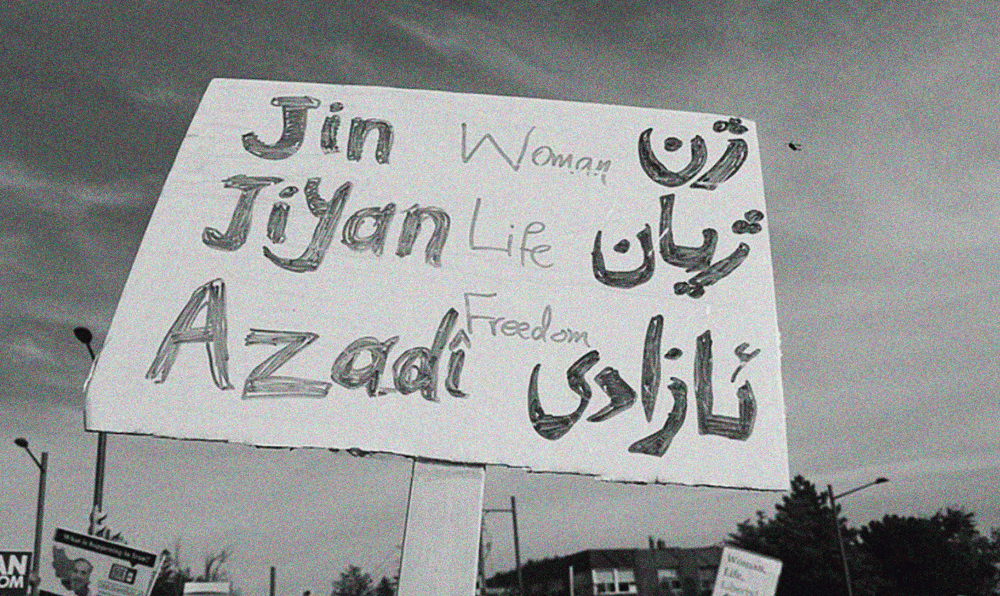 Jin Woman ژن
Jiyan Life ژیان
Azadî Freedom ئازادی
What is happening in Iran?
AN
OM
Woman,
Life,